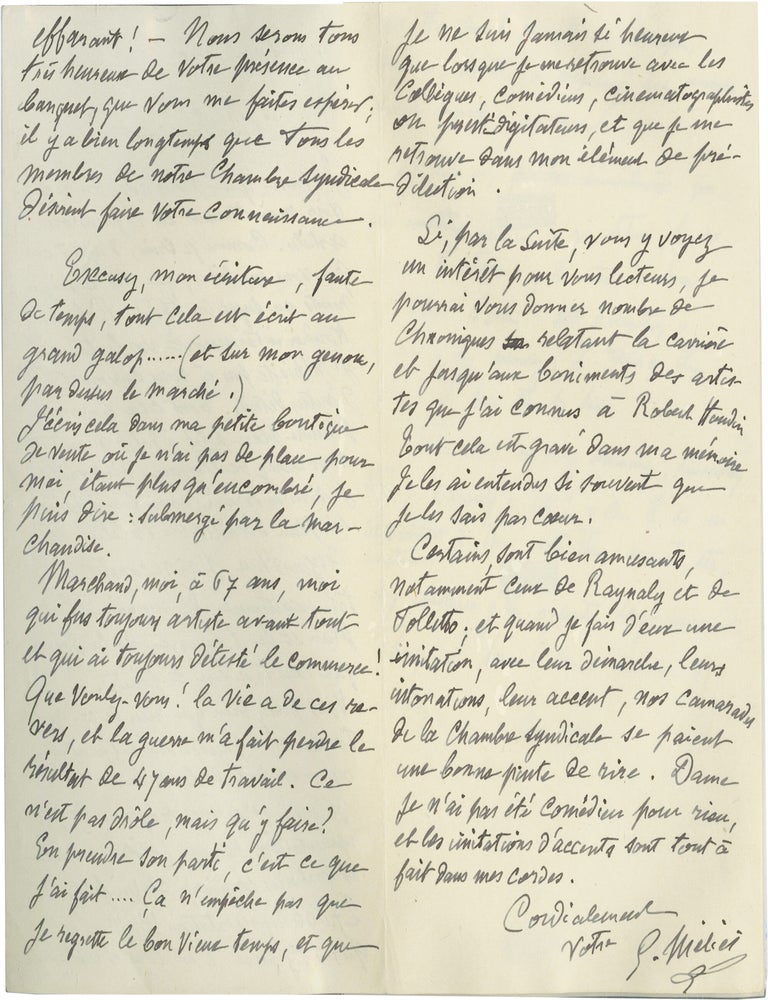 effarant! — Nous serons tous
très heureux de votre présence au
banquet, que vous me faites espérer;
il y a bien longtemps que tous les
membres de notre Chambre Syndicale
désirent faire votre connaissance.
Excusez, mon écriture, faute
de temps, tout cela est écrit au
grand galop......(et sur mon genou,
par dessus le marché.)
J'écris cela dans ma petite boutique
de vente où je n'ai pas de place pour
moi, étant plus qu'encombré, je
puis dire: submergé par la mar-
chandise.
Marchand, moi, à 67 ans, moi
qui fus toujours artiste avant tout
et qui ai toujours détesté le commerce!
Que voulez-vous! la vie a de ces re-
vers, et la guerre m'a fait perdre le
résultat de 47 ans de travail. Ce
n'est pas drôle, mais qu'y faire?
En prendre son parti, c'est ce que
j'ai fait.... Ça n'empêche pas que
je regrette le bon vieux temps, et que
je ne suis jamais si heureux
que lorsque je me retrouve avec les
Collègues, comédiens, cinematographistes
ou prestidigitateurs, et que je me
retrouve dans mon élément de pré-
dilection.
Si, par la suite, vous y voyez
un intérêt pour vous lecteurs, je
pourrai vous donner nombre de
Chroniques relatant la carrière
et jusqu'aux boniments des artis-
tes que j'ai connus à Robert Houdin
tout cela est gravé dans ma mémoire
Je les ai entendus si souvent que
je les sais par cœur.
Certains, sont bien amusants,
notamment ceux de Raynaly et de
Folletto; et quand je fais d'eux une
imitation, avec leur démarche, leurs
intonations, leur accent, nos camarades
de la Chambre Syndicale se paient
une bonne pinte de rire. Dame
je n'ai pas été comédien pour rien,
et les imitations d'accents sont tout à
fait dans mes cordes.
Cordialement
votre
G. Méliès